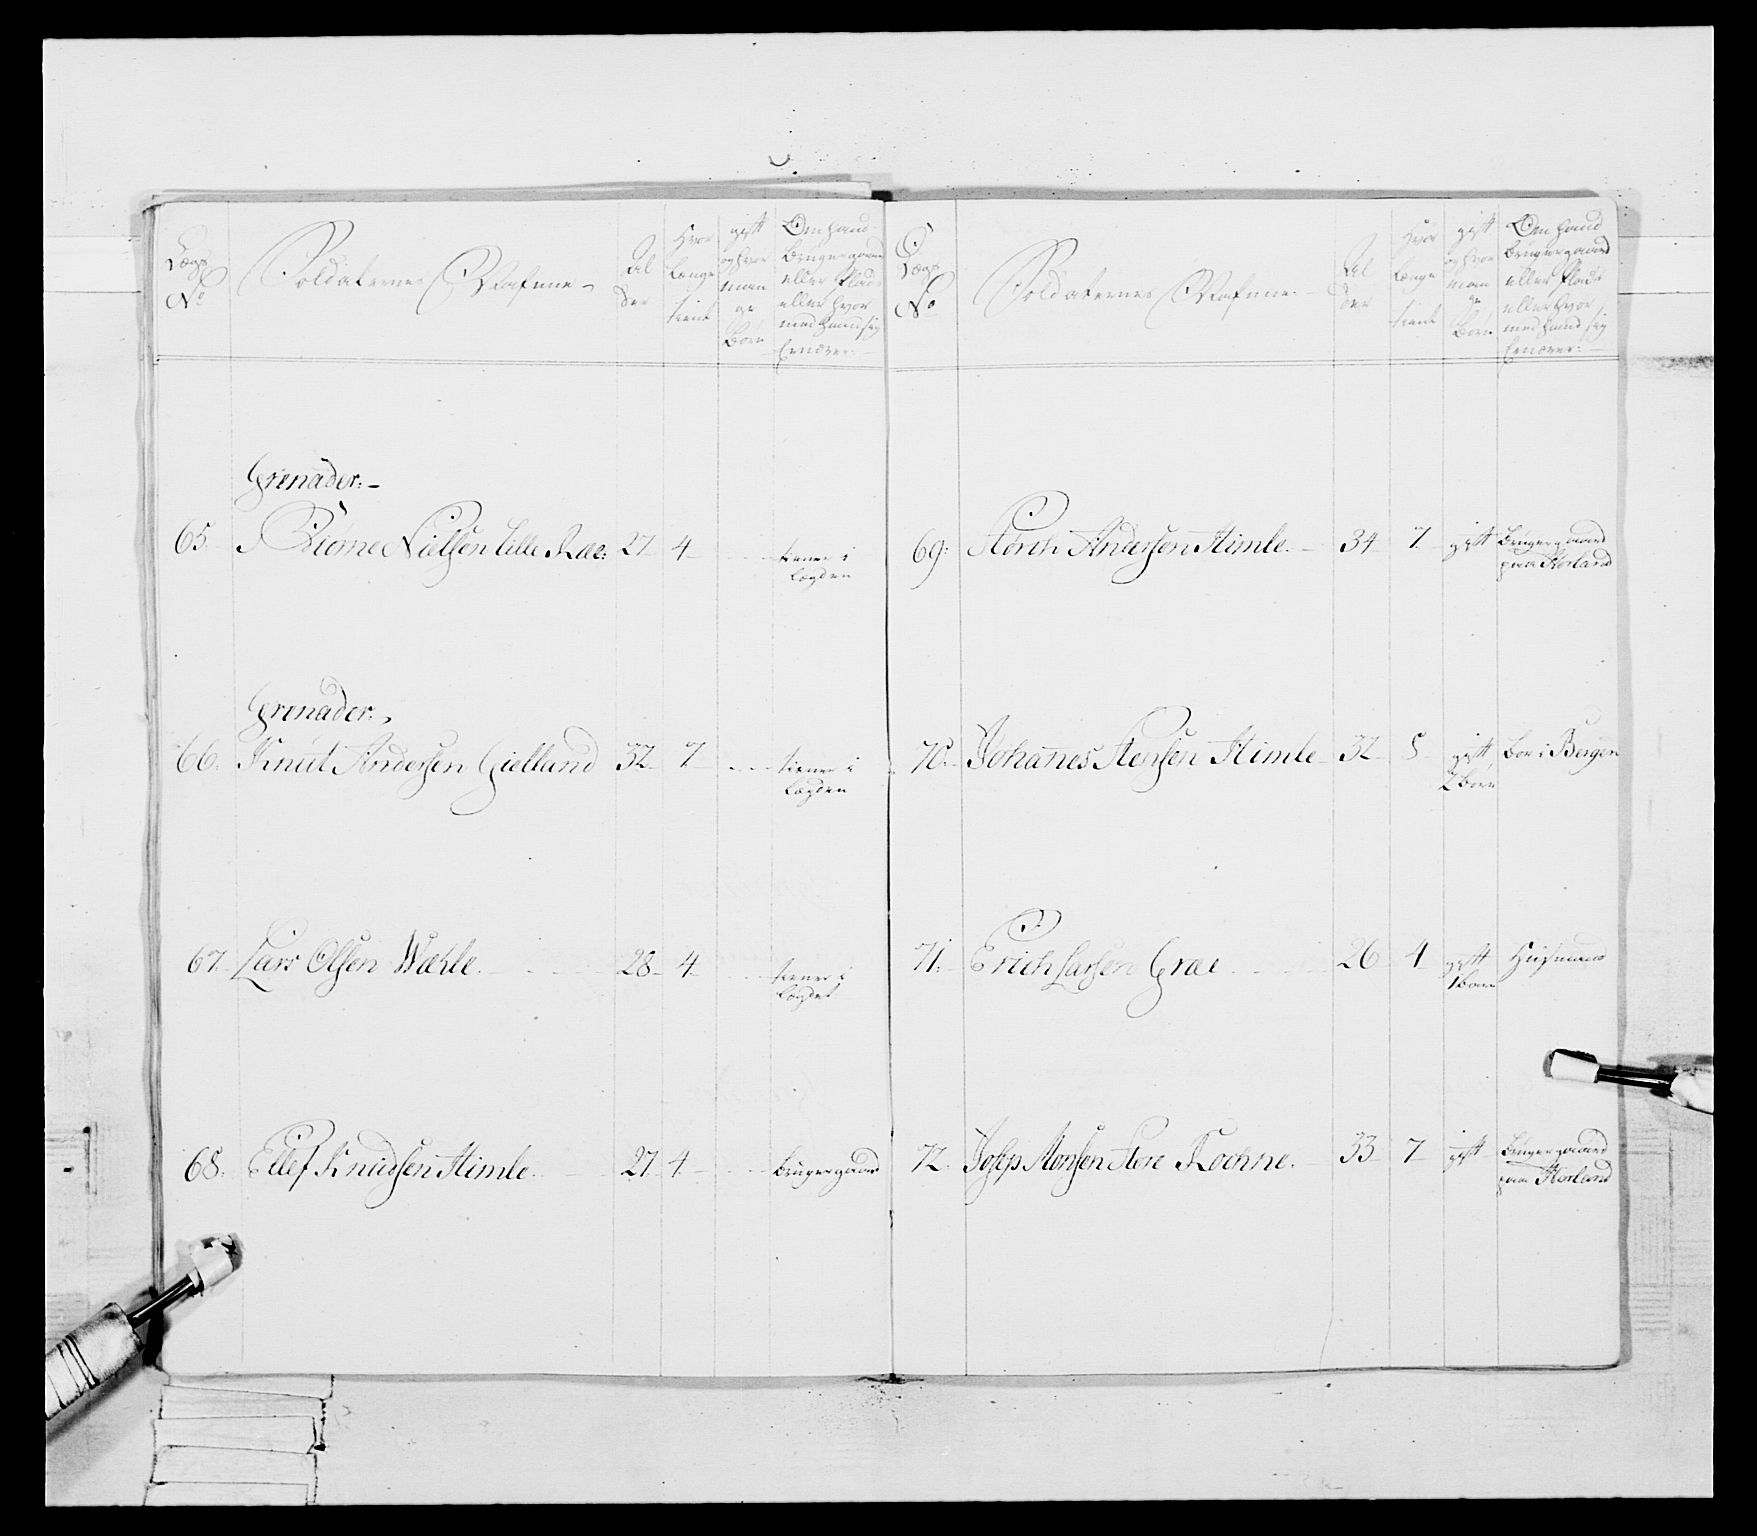 Lægs No
Soldaternes Nafne
Al der
Hvor længe tient
gift og hvor man ge Børn
Om hand bruger gaard eller Plads eller hvor med hand sig Ernærer:
Grenader:
65. Biørne Nielsen Lille Ræe: 27 4 tiener i Lægden
Grenader:
66. Knut Andersen Gielland 32 7 tiener i Lægden
67. Lars Olsen Wæhle. 28 4 tiener i Lægdet
68. Ellef Knudsen Himle. 27 4 bruger gaard
Lægs No
Soldaternes Nafne
Al der
Hvor længe tient
gift og hvor man ge Børn
Om hand bruger gaard eller Plads eller hvor med hand sig Ernærer:
69: Andersen Himle. 34 7 gift bruger gaard paa
70. Johanes Stensen Himle 32 5 gift 2 børn boer i Bergen
71. Erich Larsen Græe 26 4 gift 1 barn Huusmand
72. Josep Monsen Store 33 7 gift bruger gaard paa